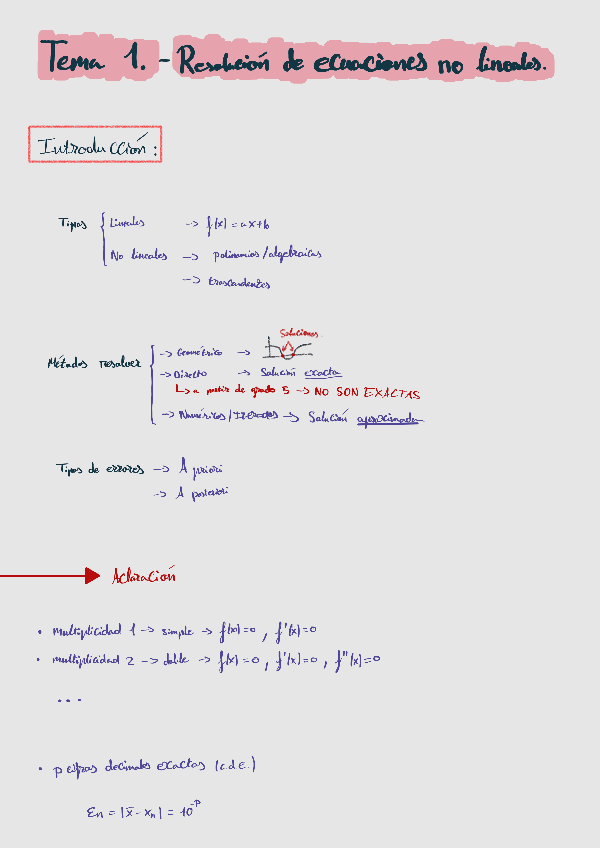 Tema 1. - Resolución de ecuaciones no lineales.
Introducción:
Tipos
Lineales -> f(x) = ax+b
No lineales -> polinomios/algebraicas
-> trascendentes
Métodos resolver
Soluciones
-> Geométrico ->
-> Directo -> Solución exacta
↳ a partir de grado 5 -> NO SON EXACTAS
-> Numéricos / -> Solución aproximada
Tipos de errores -> A priori
-> A posteriori
Aclaración
• Multiplicidad 1 -> simple -> f(x)=0, f'(x)=0
• multiplicidad 2 -> doble -> f(x)=0, f'(x)=0, f''(x)=0
...
• p cifras decimales exactas (c.d.e.)
En = |x̄ - xₙ| = 10⁻ᵖ